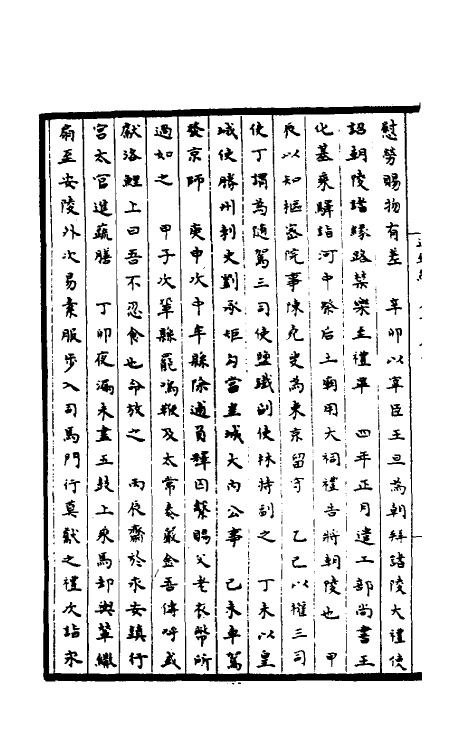 慰勞賜物有差　辛卯以宰臣王旦為朝拜諸陵大禮使
詔朝陵諸緣路禁樂至禮畢　四年正月遣工部尚書王
化基乘驛詣河中祭后土廟用大祠禮告將朝陵也　甲
辰以知樞密院事陳堯叟為東京留守　乙巳以權三司
使丁謂為隨駕三司使鹽鐵副使林特副之　丁未以皇
城使勝州刺史劉承珪勾當皇城大內公事　己未車駕
發京師　庚申次中牟縣除逋負釋囚繫賜父老衣幣所
過如之　甲子次鞏縣罷鳴鞭及太常奏嚴金吾傳呼或
獻洛鯉上曰吾不忍食也命放之　丙辰齋於永安鎮行
宮太官進蔬膳　丁卯夜漏未盡五鼓上乘馬却輿輦繖
扇至安陵外次易素服步入司馬門行奠獻之禮次詣永